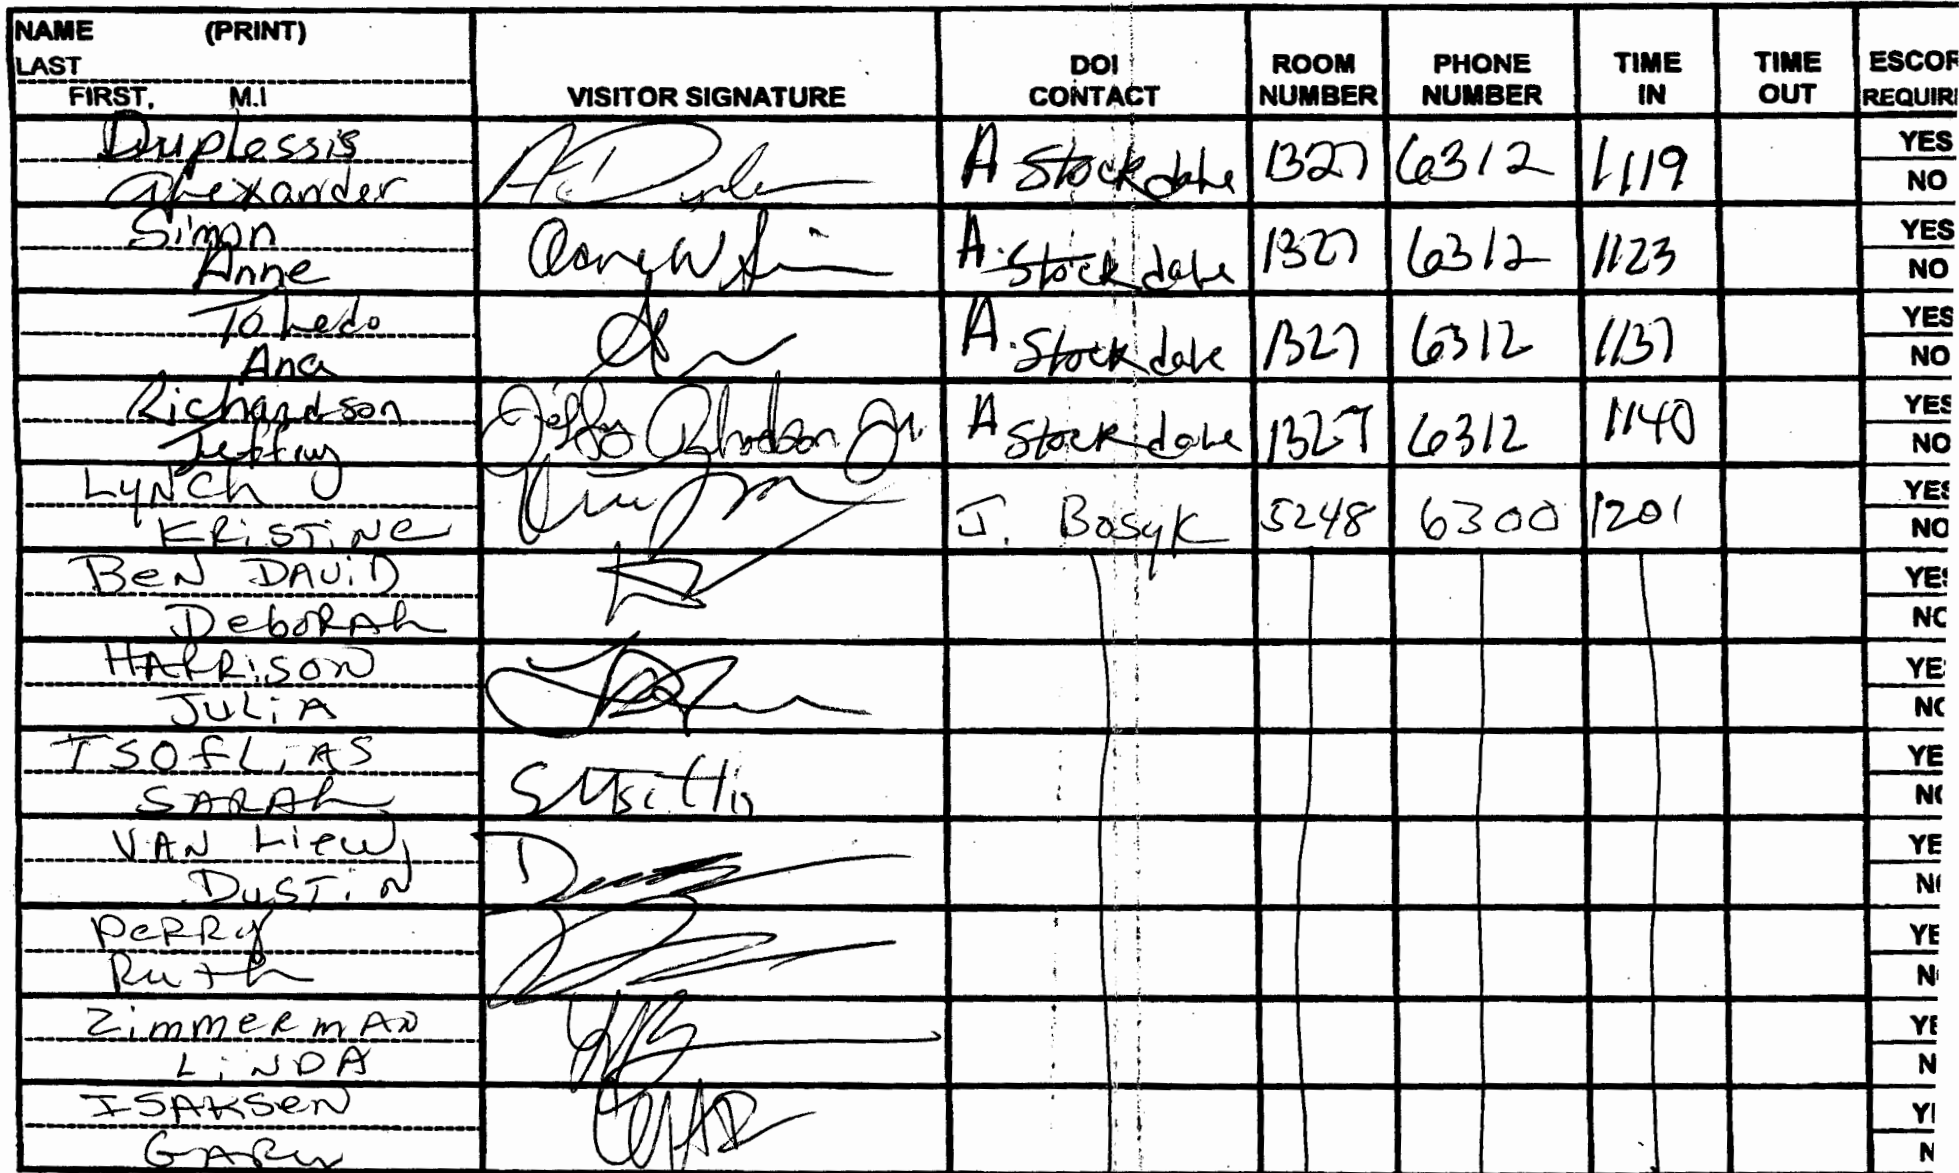 NAME (PRINT)
LAST
FIRST, M.I
VISITOR SIGNATURE
DOI CONTACT
ROOM NUMBER
PHONE NUMBER
TIME IN
TIME OUT
ESCOR
REQUIR
Duplessis
Alexander
A Stockdale 1327 6312 1119
YES
NO
Simon
Anne
A. Stockdale 1327 6312 1123
YES
NO
Toledo
Ana
A. Stockdale 1327 6312 1137
YES
NO
Richardson
Jeffrey
Jeffry Richardson Jr.
A Stockdale 1327 6312 1140
YES
NO
Lynch
KRiSTiNe
J. Bosyk 5248 6300 1201
YES
NO
BeN DAViD
DeboRAh
YES
NO
HARRiSON
JuLiA
YE
NO
TSOfLiAS
SARAh
YE
NO
VAN Liew,
DuSTiN
YE
NO
PeRRy
Ruth
YE
N
ZimmeRmAN
LiNDA
YE
N
ISAKSeN
GARy
YE
N